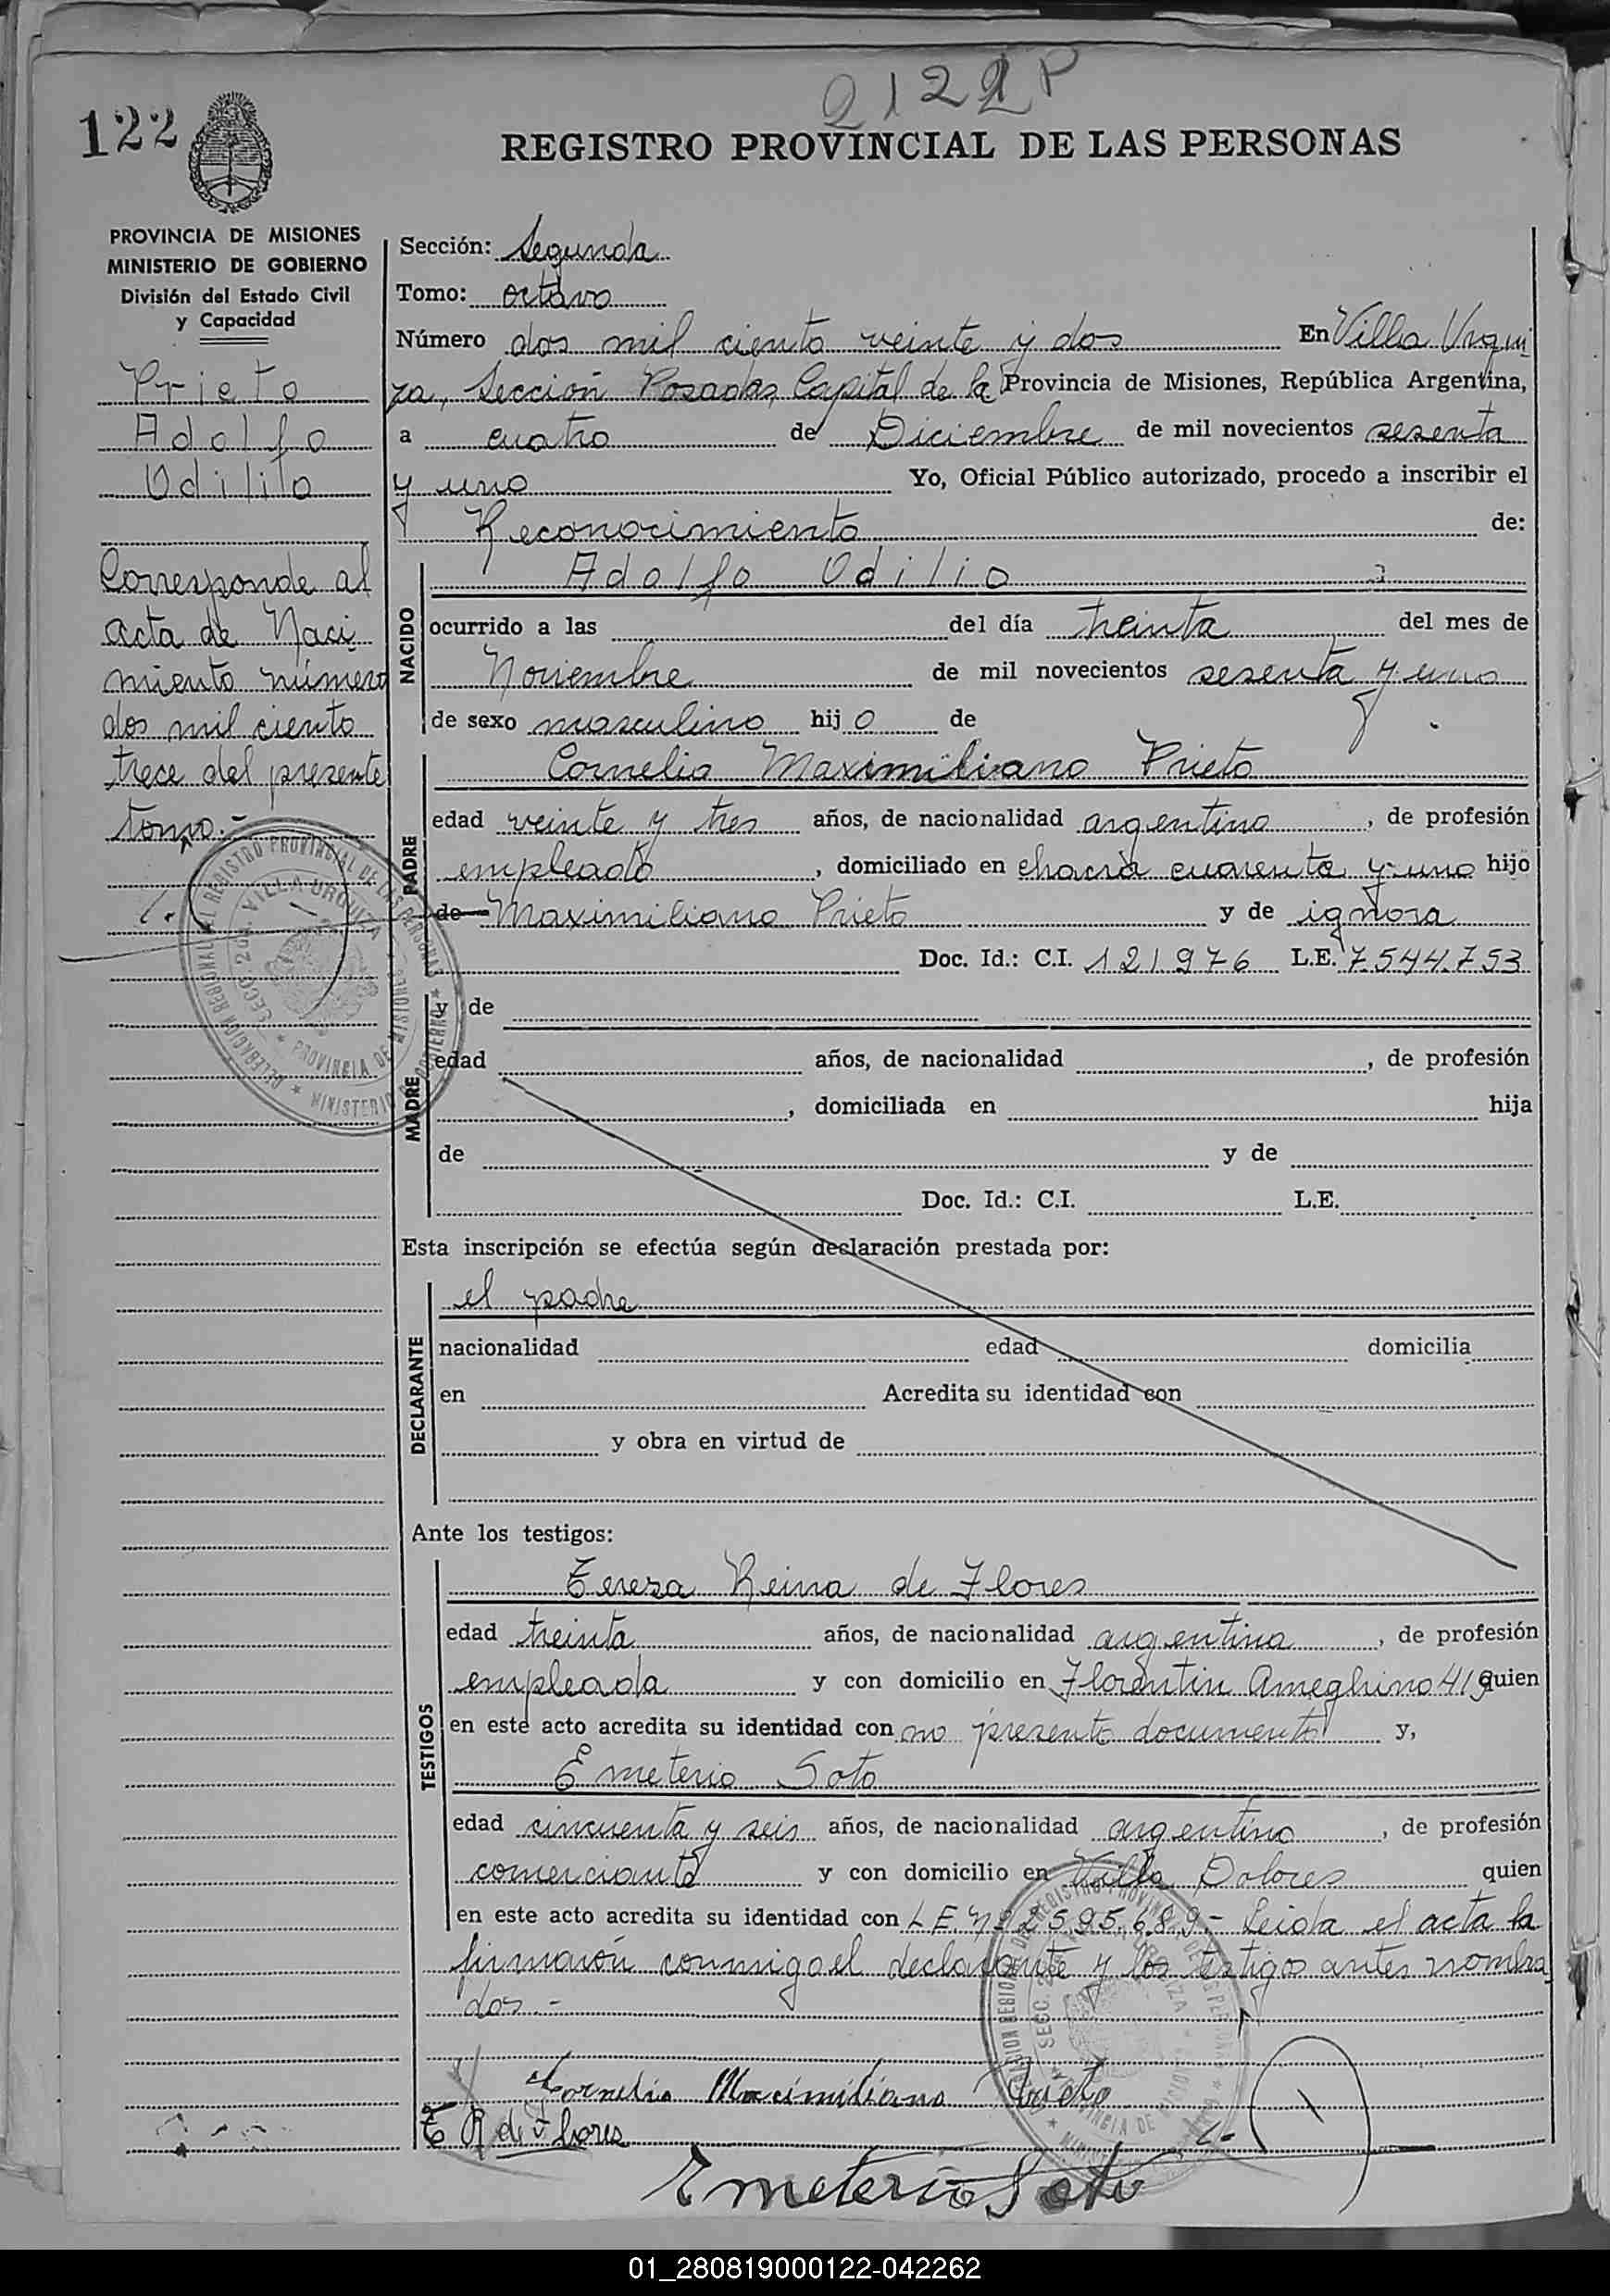 2122 P
122
REGISTRO PROVINCIAL DE LAS PERSONAS
PROVINCIA DE MISIONES
MINISTERIO DE GOBIERNO
División del Estado Civil
y Capacidad
Prieto
Adolfo
Odilio
Corresponde al
acta de Naci
miento número
dos mil ciento
trece del presente
tomo.-
Sección: Segunda
Tomo: octavo
Número dos mil ciento veinte y dos En Villa Urqui
za, Sección Posadas, Capital de la Provincia de Misiones, República Argentina,
a cuatro de Diciembre de mil novecientos sesenta
y uno Yo, Oficial Público autorizado, procedo a inscribir el
Reconocimiento de:
NACIDO
Adolfo Odilio
ocurrido a las del día treinta del mes de
Noviembre de mil novecientos sesenta y uno
de sexo masculino hijo de
PADRE
Cornelio Maximiliano Prieto
edad veinte y tres años, de nacionalidad argentino, de profesión
empleado, domiciliado en chacra cuarenta y uno hijo
de Maximiliano Prieto y de ignora
Doc. Id.: C.I. 121.976 L.E. 7.544.753
MADRE
y de
edad años, de nacionalidad , de profesión
, domiciliada en hija
de y de
Doc. Id.: C.I. L.E.
Esta inscripción se efectúa según declaración prestada por:
DECLARANTE
el padre
nacionalidad edad domicilia
en Acredita su identidad con
y obra en virtud de
Ante los testigos:
TESTIGOS
Tereza Reina de Flores
edad treinta años, de nacionalidad argentina, de profesión
empleada y con domicilio en Florentin Ameghino 419 quien
en este acto acredita su identidad con no presento documento y,
Emeterio Soto
edad cincuenta y seis años, de nacionalidad argentino, de profesión
comerciante y con domicilio en Villa Dolores quien
en este acto acredita su identidad con L.E. Nº 2.595.689.- Leida el acta la
firmaron conmigo el declarante y los testigos antes nombra
dos.-
Cornelio Maximiliano Prieto
T R de Flores
Emeterio Soto
DELEGACION REGIONAL DEL REGISTRO PROVINCIAL DE LAS PERSONAS
MINISTERIO DE GOBIERNO
SECC. 2da. VILLA URQUIZA
PROVINCIA DE MISIONES
01_280819000122-042262